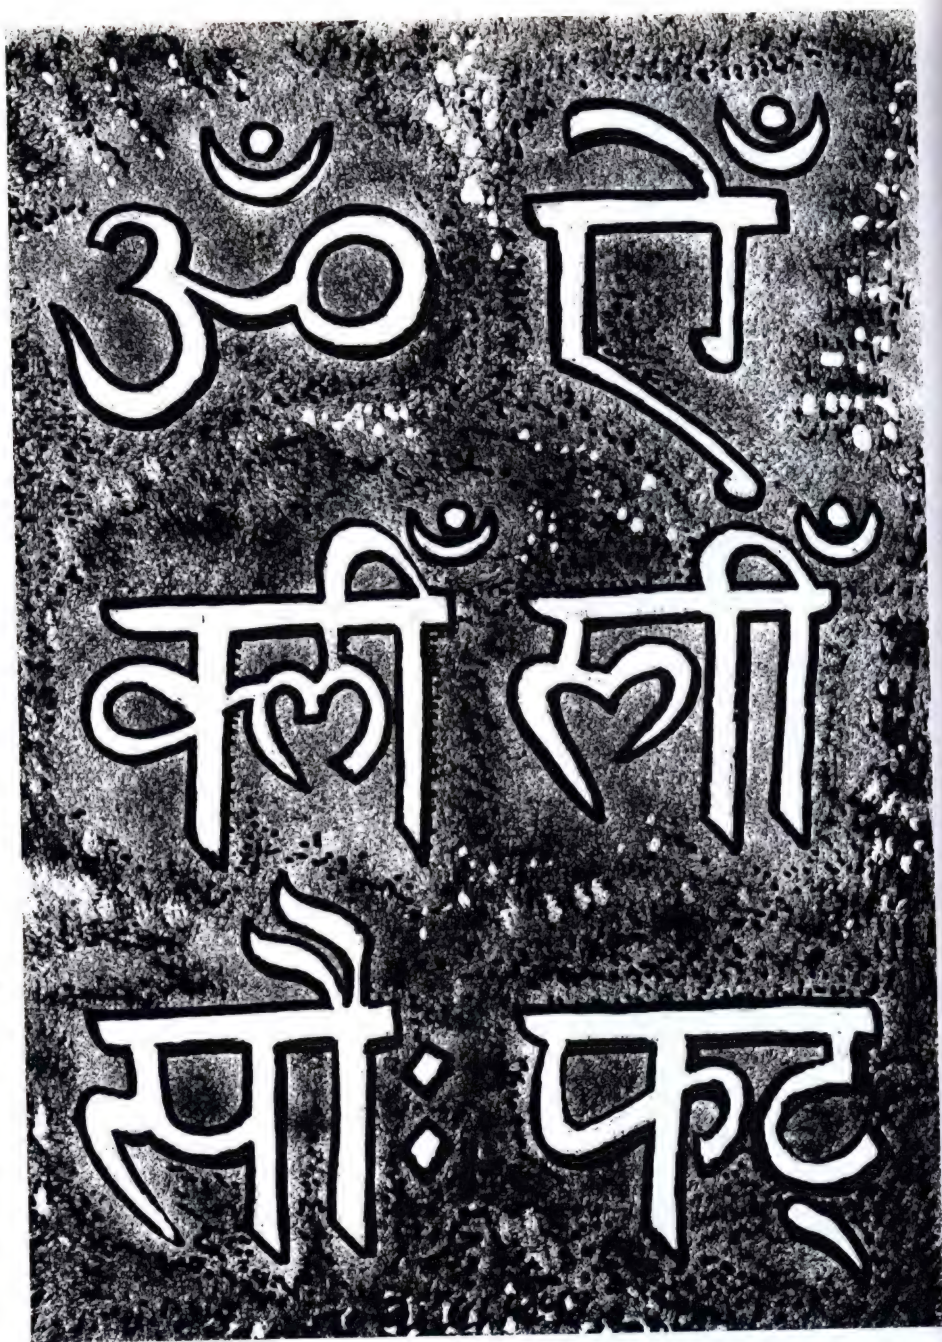 ॐ ऐँ
क्लीँ
सौः फट्